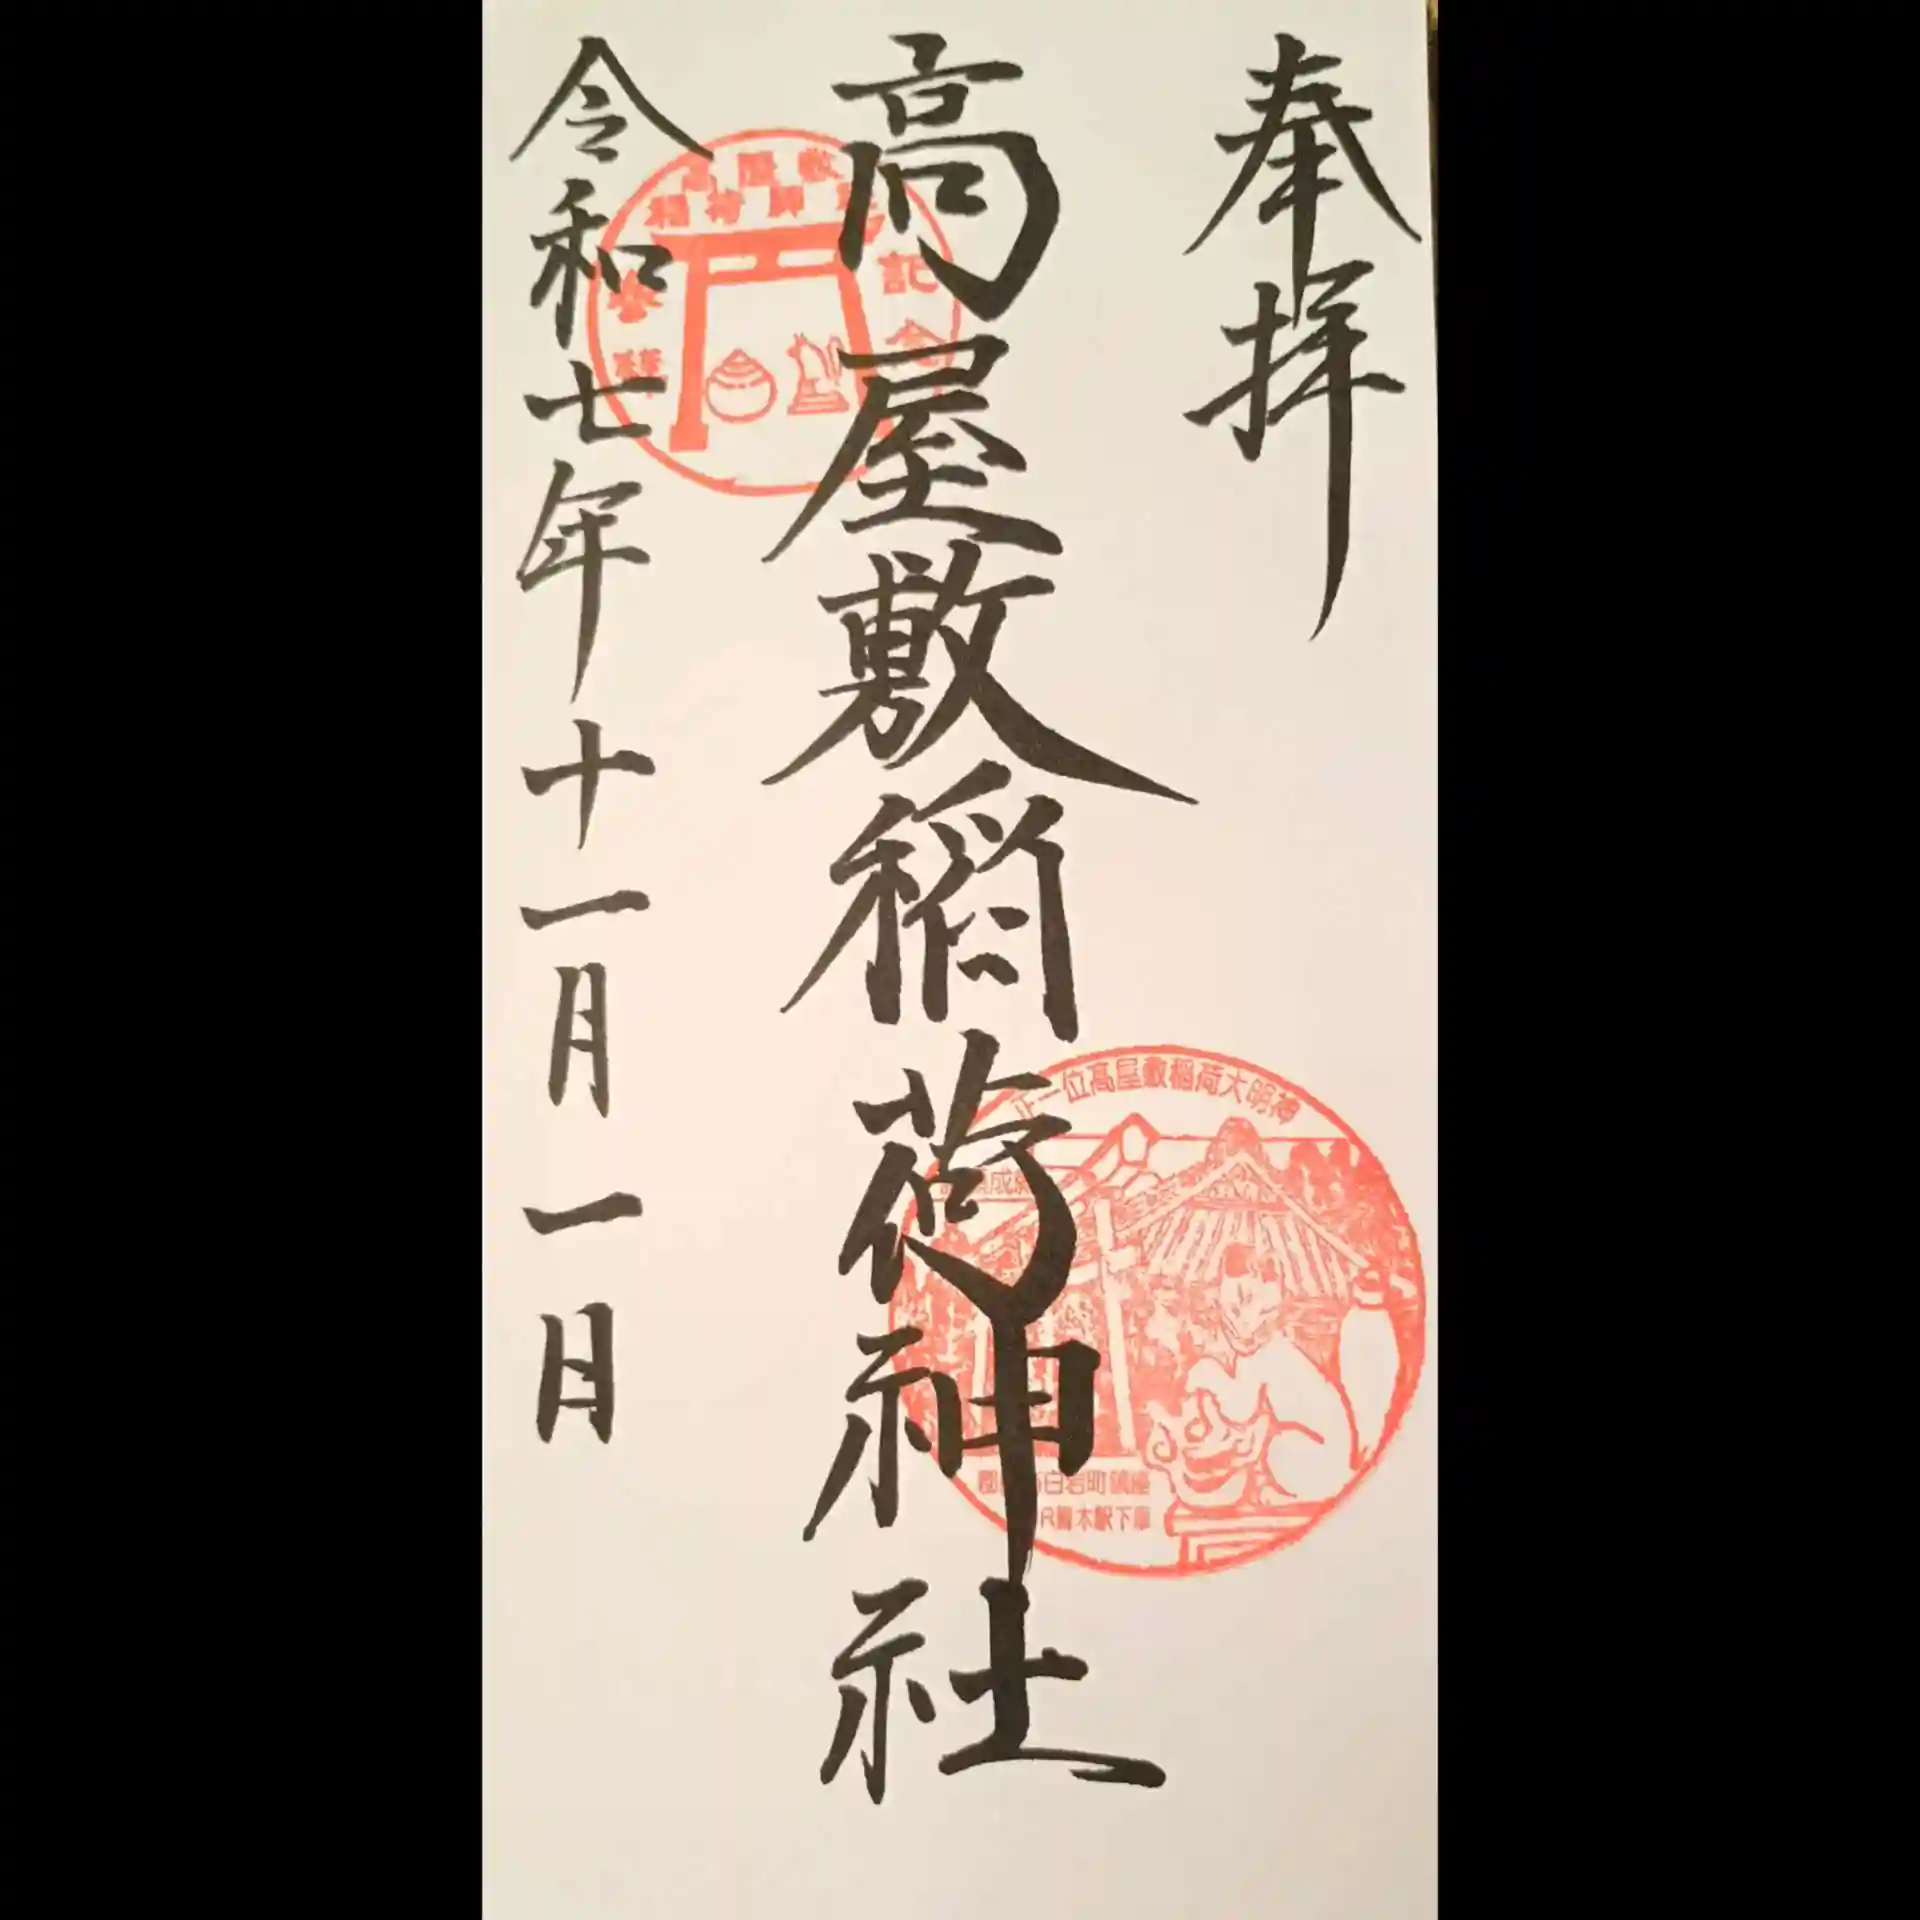 奉拝
高屋敷稲荷神社
令和七年十一月一日
高屋敷
稲荷神社
記念
参拝
正一位高屋敷稲荷大明神
白岩町鎮座
木駅下車